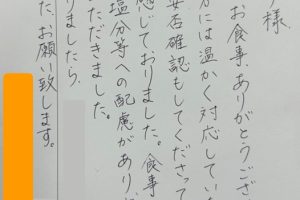 様
お食事、ありがとうござ
方には温かく対応してい
安否確認もしてくださって
感じておりました。食事
塩分等への配慮があり、
ただきました。
りましたら
た、お願い致します。